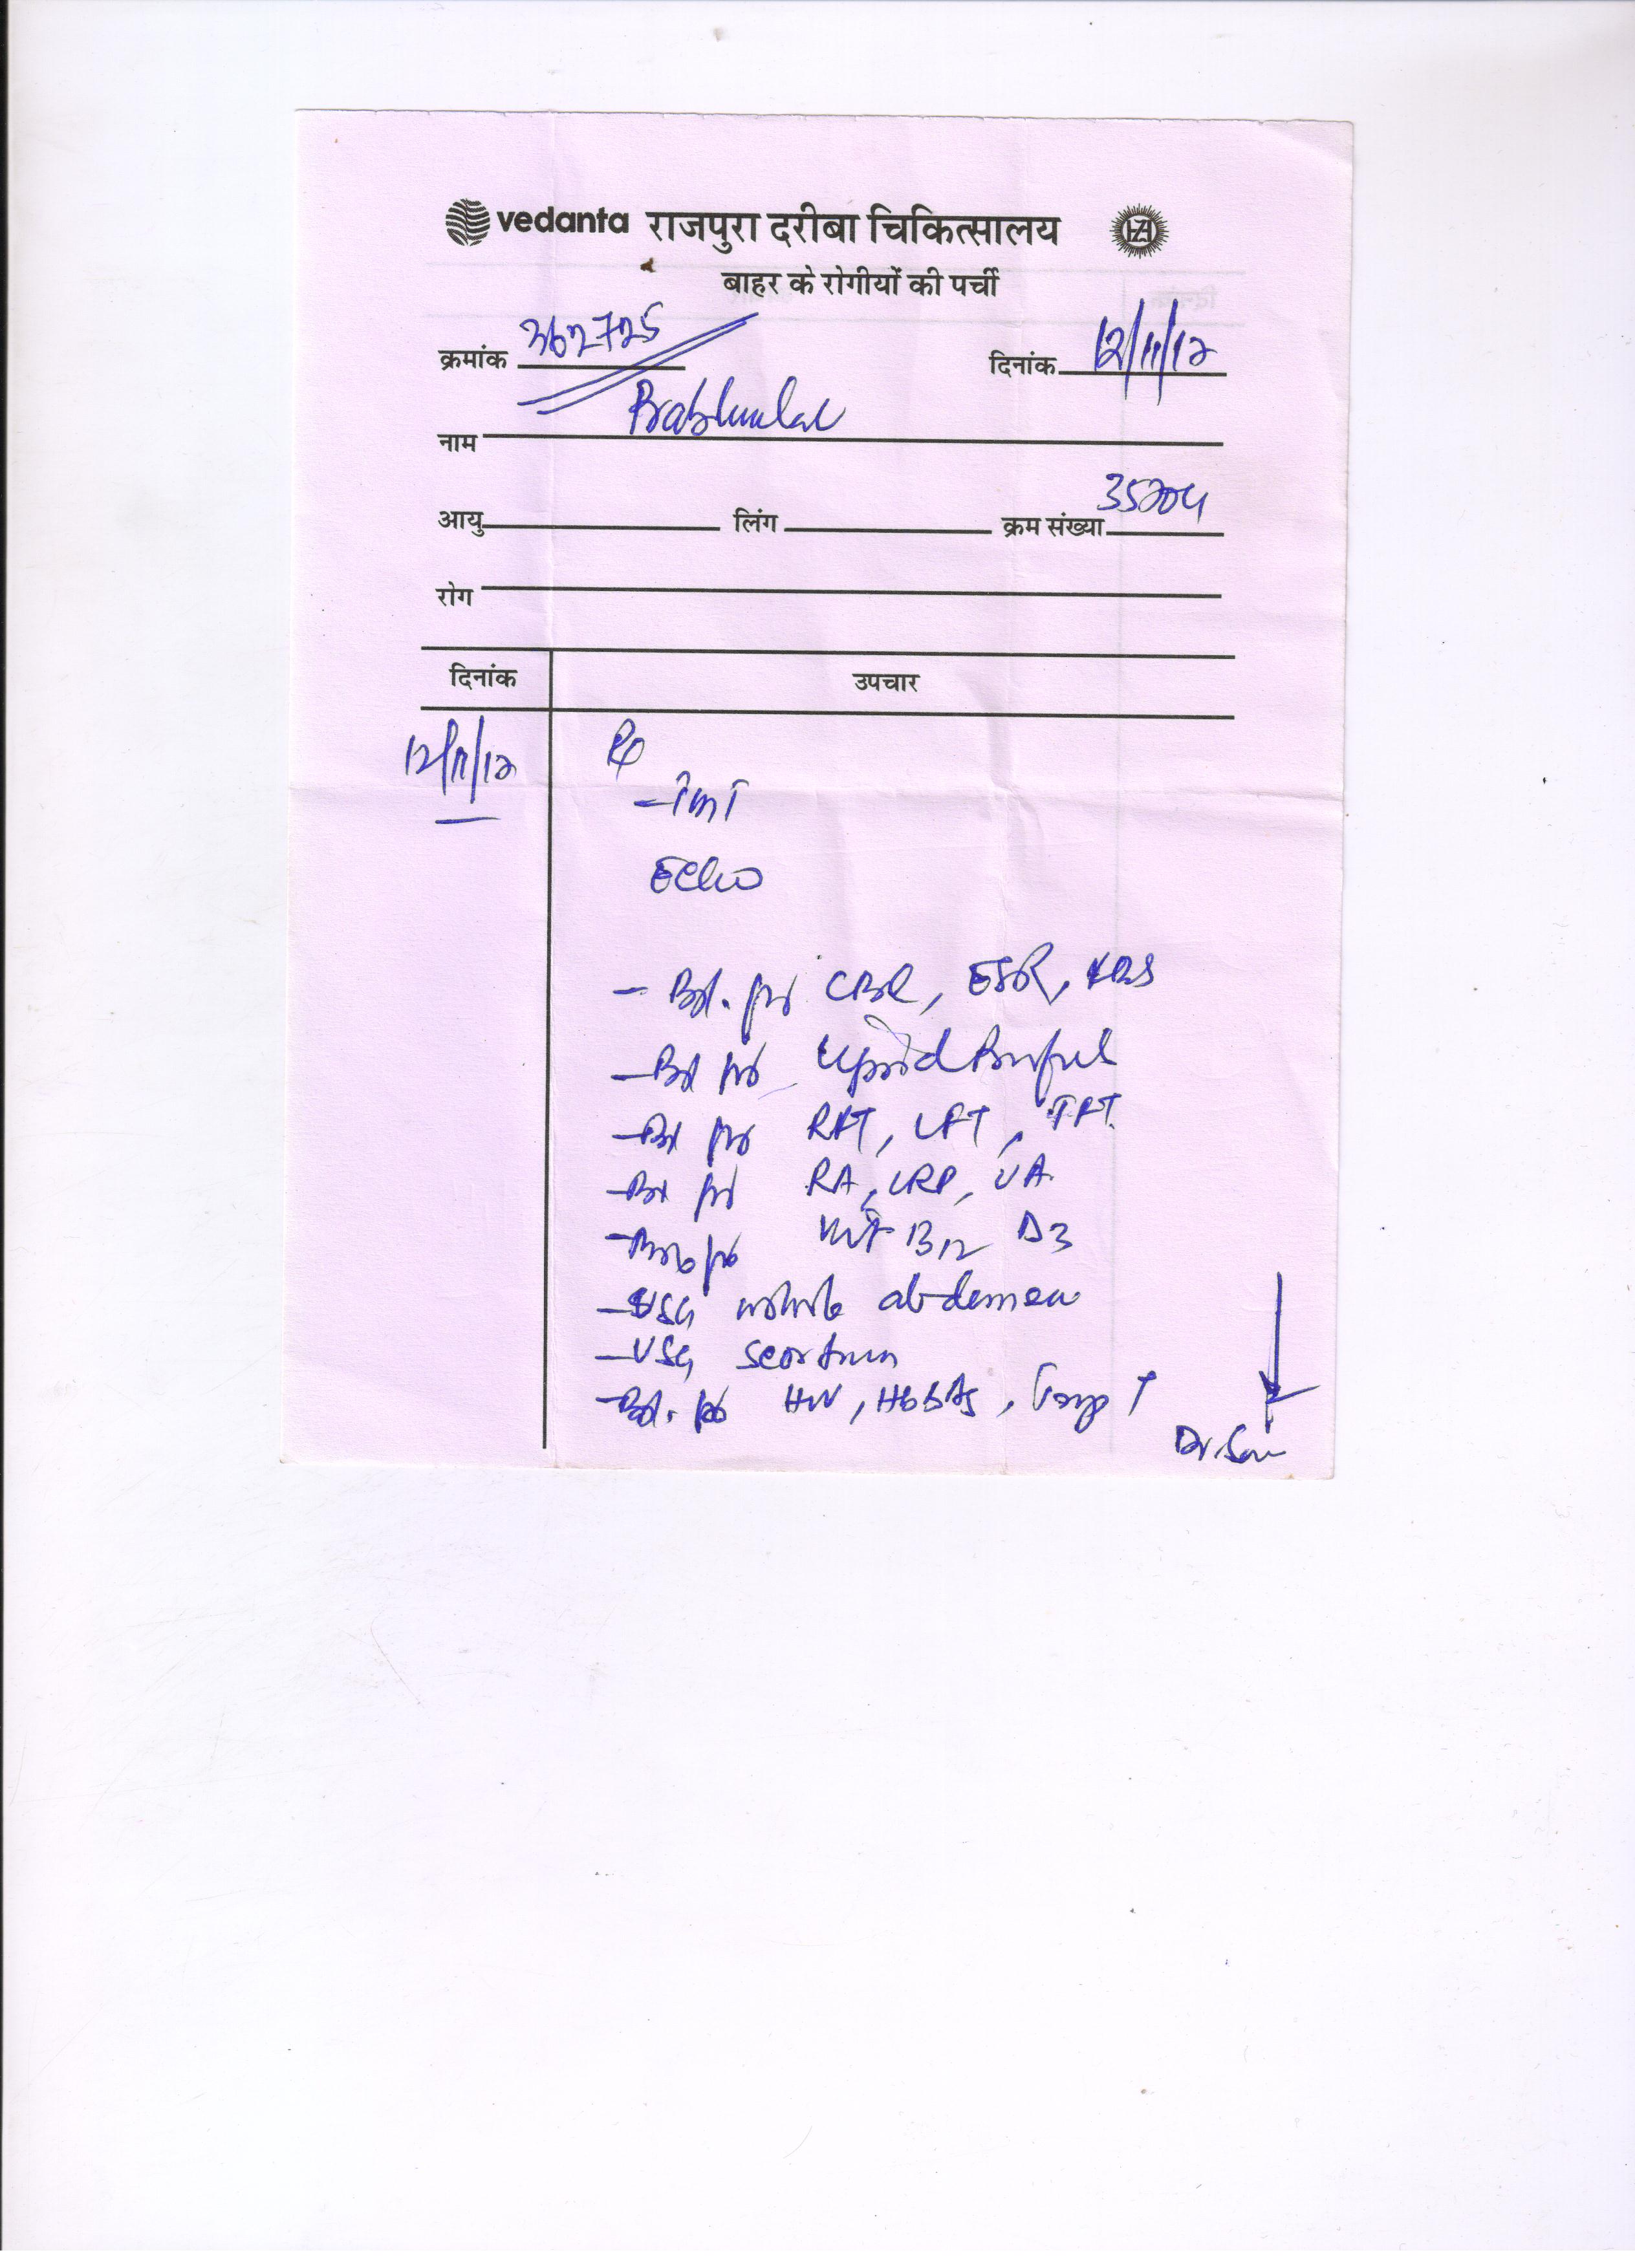 vedanta राजपुरा दरीबा चिकित्सालय HZL
बाहर के रोगीयों की पर्ची
क्रमांक 362725 दिनांक 12/11/12
नाम Prabhulal
आयु लिंग क्रम संख्या 35204
रोग
दिनांक उपचार
12/11/12 Rx
- TMT
Echo
- Bd. for CBC, ESR, RBS
- Bd for Lipid Profile
- Bd for RFT, LFT, TFT
- Bd for RA, CRP, UA
- for Vit B12 D3
- USG whole abdomen
- USG scortum
- Bd. for HIV, HbsAg,
Dr.